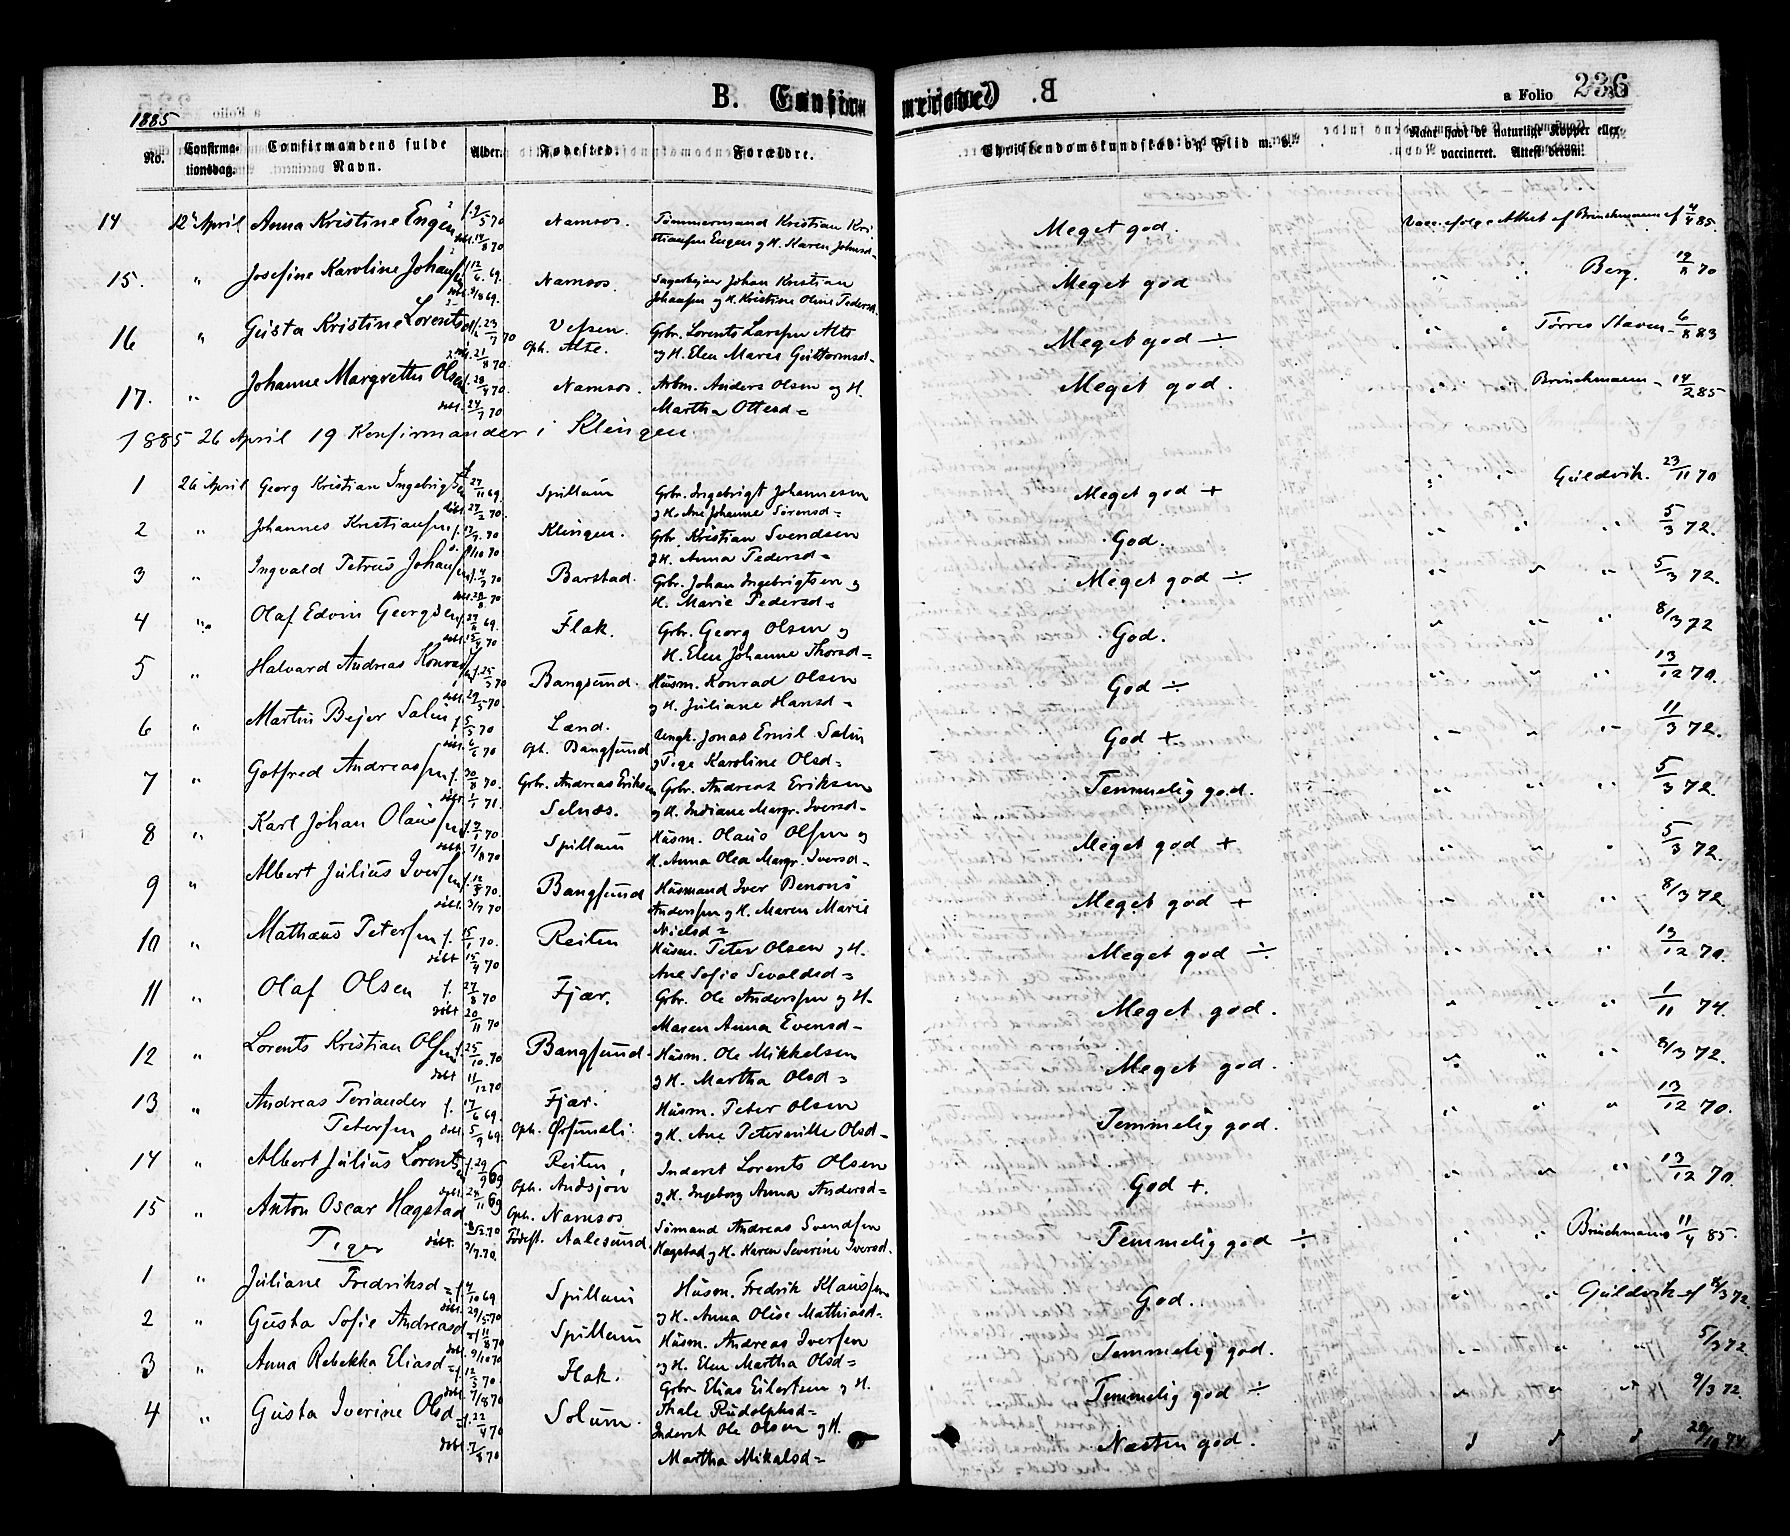 B. Confirm
a Folio 236
1885
No. Confirma-tionsdag. Confirmandens fulde Navn. Alder. Fødested. Forældre. Christendomskundskab og Flid m. v. Naar havt de naturlige Kopper eller vaccineret. Attest derom.
14 12 April Anna Kristine Engen f. 9/5 70 Namsos. Tømmermand Kristian Kri- Meget god. Attest af Brinchmann af 4/4 85.
døbt. 14/8 70 stiansen Engen og H. Karen Johnsd=
15. " Josefine Karoline Johansen 12/6 69. Namsos. Johan Kristian Meget god " " Berg. 19/8 70
Johansen og H. Kristine Oline Pedersd.
16 " Gusta Kristine Lorentsd. f. 23/7 70 Vefsen. Gbr. Lorents Larsen Alte Meget god ÷ " " Tørres Staven 6/8 83
døbt. 21/8 70. Oph. Alte. og H. Elen Marie Guttormsd=
17. " Johanne Margrethe Olsen f. 28/4 70. Namsos. Arbm. Anders Olsen og H. Meget god. " " Brinchmann 14/2 85
døbt. 24/7 70 Martha Ottesd=
1885 26 April 19 Konfirmander i Klingen
1 26 April Georg Kristian Ingebrigtsen 27/11 69. Spillum Gbr. Ingebrigt Johannesen Meget god + " " Guldvik. 23/11 70
døbt. 27/2 70. og H. Ane Johanne Sørensd=
2 " Johannes Kristiansen f. 17/9 70 Klingen. Gbr. Kristian Svendsen God. " " " 5/3 72.
9/10 70 og H. Anna Pedersd=
3 " Ingvald Petrus Johansen f. 4/7 70 Barstad. Gbr. Johan Ingebrigtsen og Meget god ÷ " " " 5/3 72.
døbt. 28/8 70 H. Marie Pedersd=
4 " Olaf Edvin Georgsen 69. Flak. Gbr. Georg Olsen og God. " " " 8/3 72
70 H. Elen Johanne Thorsd=
5 " Halvard Andreas Konradsen f. 25/3 70 Bangsund. Husm. Konrad Olsen God ÷ " " " 13/12 70.
døbt. 29/5 70. og H. Juliane Hansd=
6 " Martin Bejer Salin f. 5/3 70 Lænd. Ungk. Jonas Emil Salin God + " " " 11/3 72.
døbt. 6/6 70 Oph. Bangsund og Pige Karoline Olsd=
7 " Gotfred Andreassen f. 30/8 70. Gbr. Andreas Eriksen Gbr. Andreas Eriksen Temmelig god. " " " 5/3 72.
døbt 1/1 71. Selnæs. og H. Indiane Margr. Iversd=
8 " Karl Johan Olaussen 70 Spillum Husm. Olaus Olsen og Meget god + " " " 5/3 72.
døbt. 7/8 70 H. Anna Olea Margr. Iversd=
9 " Albert Julius Iversen f. 12/5 70. Bangsund Husmand Iver Benoni Meget god + " " " 8/3 72.
døbt. 3/7 70 Andersen og H. Maren Marie
Nielsd=
10 " Mathæus Petersen f. 15/1 70. Reiten Husm. Peter Olsen og H. Meget god ÷ " " " 13/12 70.
døbt 15/4 70 Ane Sofie Sevaldsd=
11 " Olaf Olsen f. 27/8 70 Fjær. Gbr. Ole Andersen og H. Meget god. " " " 1/11 74.
døbt 20/11 70 Maren Anna Evensd=
12 " Lorents Kristian Olsen f. 25/10. 70 Bangsund. Husm. Ole Mikkelsen Meget god. " " " 8/3 72.
døbt 11/12 70 og H. Martha Olsd=
13 " Andreas Periander f. 17/6 69 Fjær. Husm. Peter Olsen Temmelig god. " " " 13/12 70.
Petersen døbt. 5/9 69. Oph. og H. Ane Peternille Olsd=
14 " Albert Julius Lorents f. 29/9 69 Reiten, Inderst Lorents Olsen God +. " " " 13/12 70.
døbt. 11 69 Oph. Audsjøn og H. Ingeborg Anna Andersd=
15 " Anton Oscar Hagstad 70 Oph. Namsos Sømand Andreas Svendsen Temmelig god ÷ " " Brinchmann 11/4 85.
døbt. 3/7. 70. Fødest. Aalesund. Hagstad og H. Karen Severine Iversd.
Piger
1 " Juliane Fredriksd= f. 4/10 69 Spillum Husm. Fredrik Klausen God. " " Guldvik af 8/3 72
døbt. 29/5. 70 og H. Anna Olise Mathiasd.
2 " Gusta Sofie Andreasd f. 11/8 70 Spillum Husm. Andreas Iversen Temmelig god. " " " 5/3 72.
døbt. 9/10 70 og H. Elen Martha Olsd=
3 " Anna Rebekka Eliasd= f. 12/5 70 Flak. Gbr. Elias Eilertsen og H. Temmelig god ÷ " " " 9/3 72.
døbt. 7/8 70 Thale Rudolphsd=
4 " Gusta Iverine Olsd= f. 22/4 70 Solum. Inderst Ole Olsen og H. Næsten god.
døbt. 7/8 70 Martha Mikalsd=